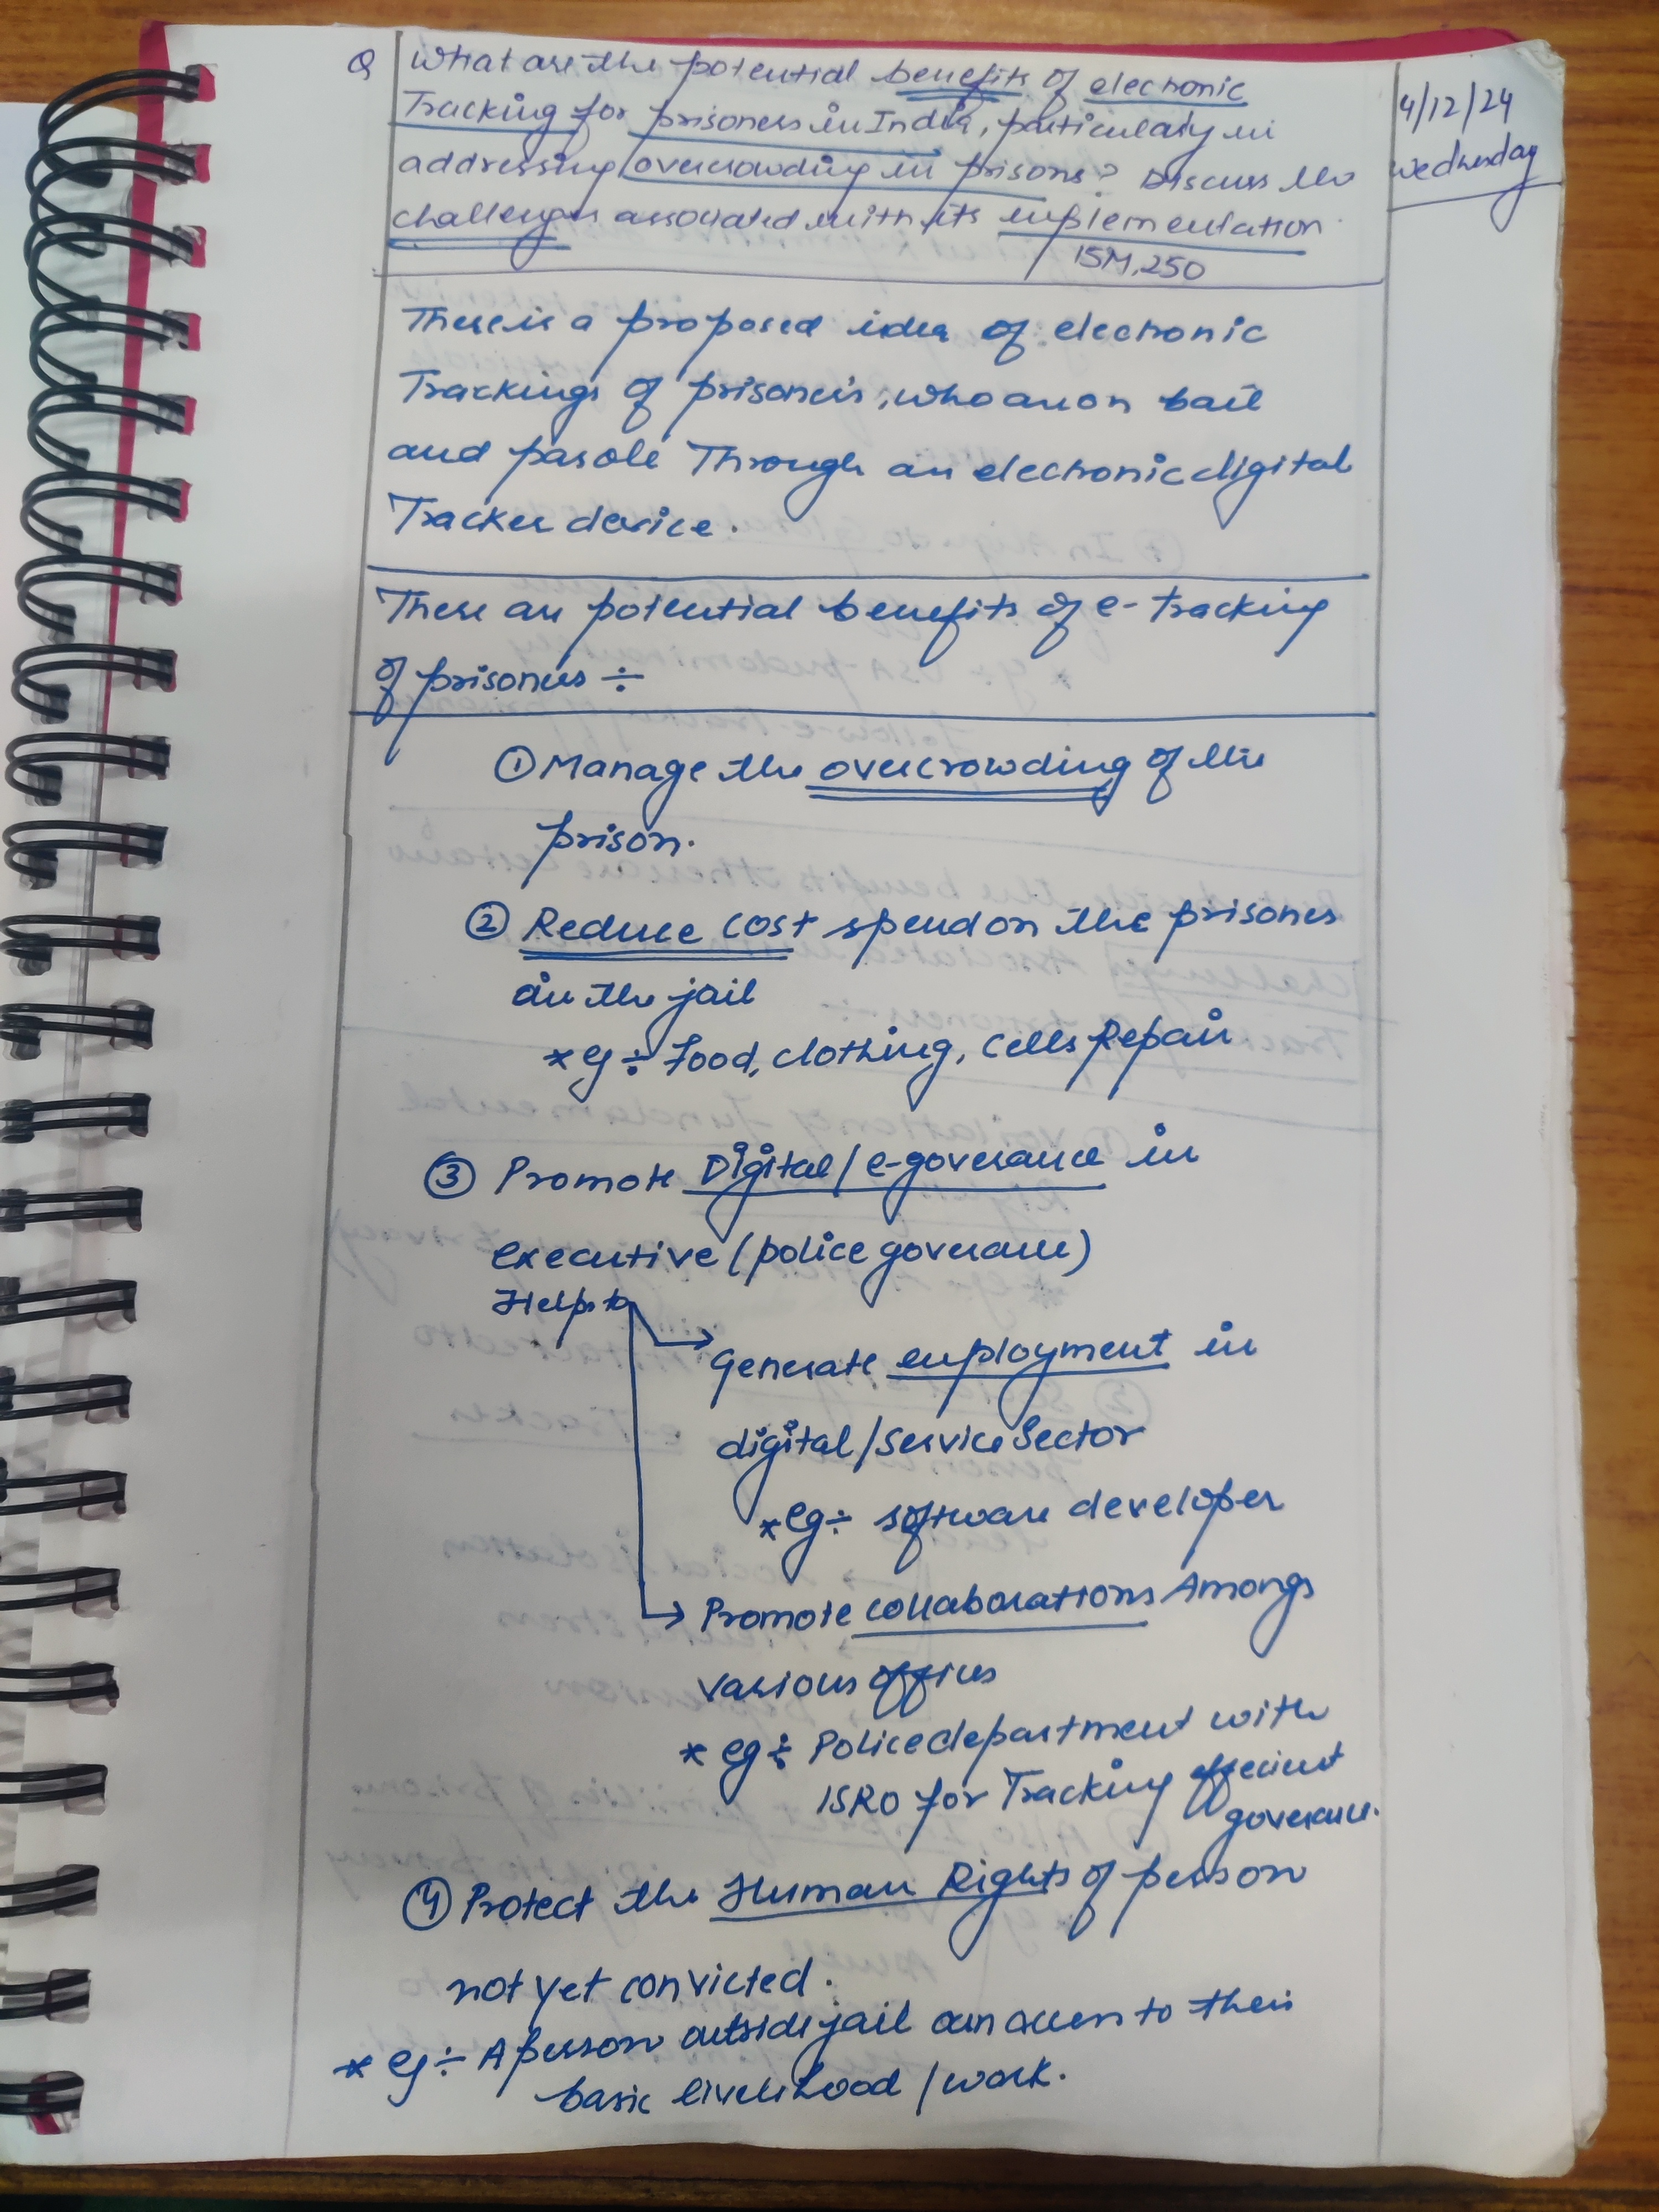 Q What are the potential benefits of elecronic
Tracking for prisoners in India, particulaly in
addressing overcrowding in prisons? Discuss the
challenges associated with its implementation.
15M, 250
4/12/24
Wednesday
There is a proposed idea of elecronic
Trackings of prisoners, who are on bail
and parole Through an elecronic digital
Tracker device.
These are potential benefits of e-tracking
of prisoners ÷
① Manage the overcrowding of the
prison.
② Reduce cost spend on the prisones
in the jail
* eg ÷ Food, clothing, Cells Repair
③ Promote Digital / e-goverance in
executive (police goverance)
Helps to
→ Generate employment in
digital / Service Sector
* eg ÷ software developer
→ Promote collaborations Amongs
various offices
* eg ÷ Police department with
ISRO for Tracking effecient
goverance.
④ Protect the Human Rights of person
not yet convicted.
* eg ÷ A person outside jail can access to their
basic livelihood / work.